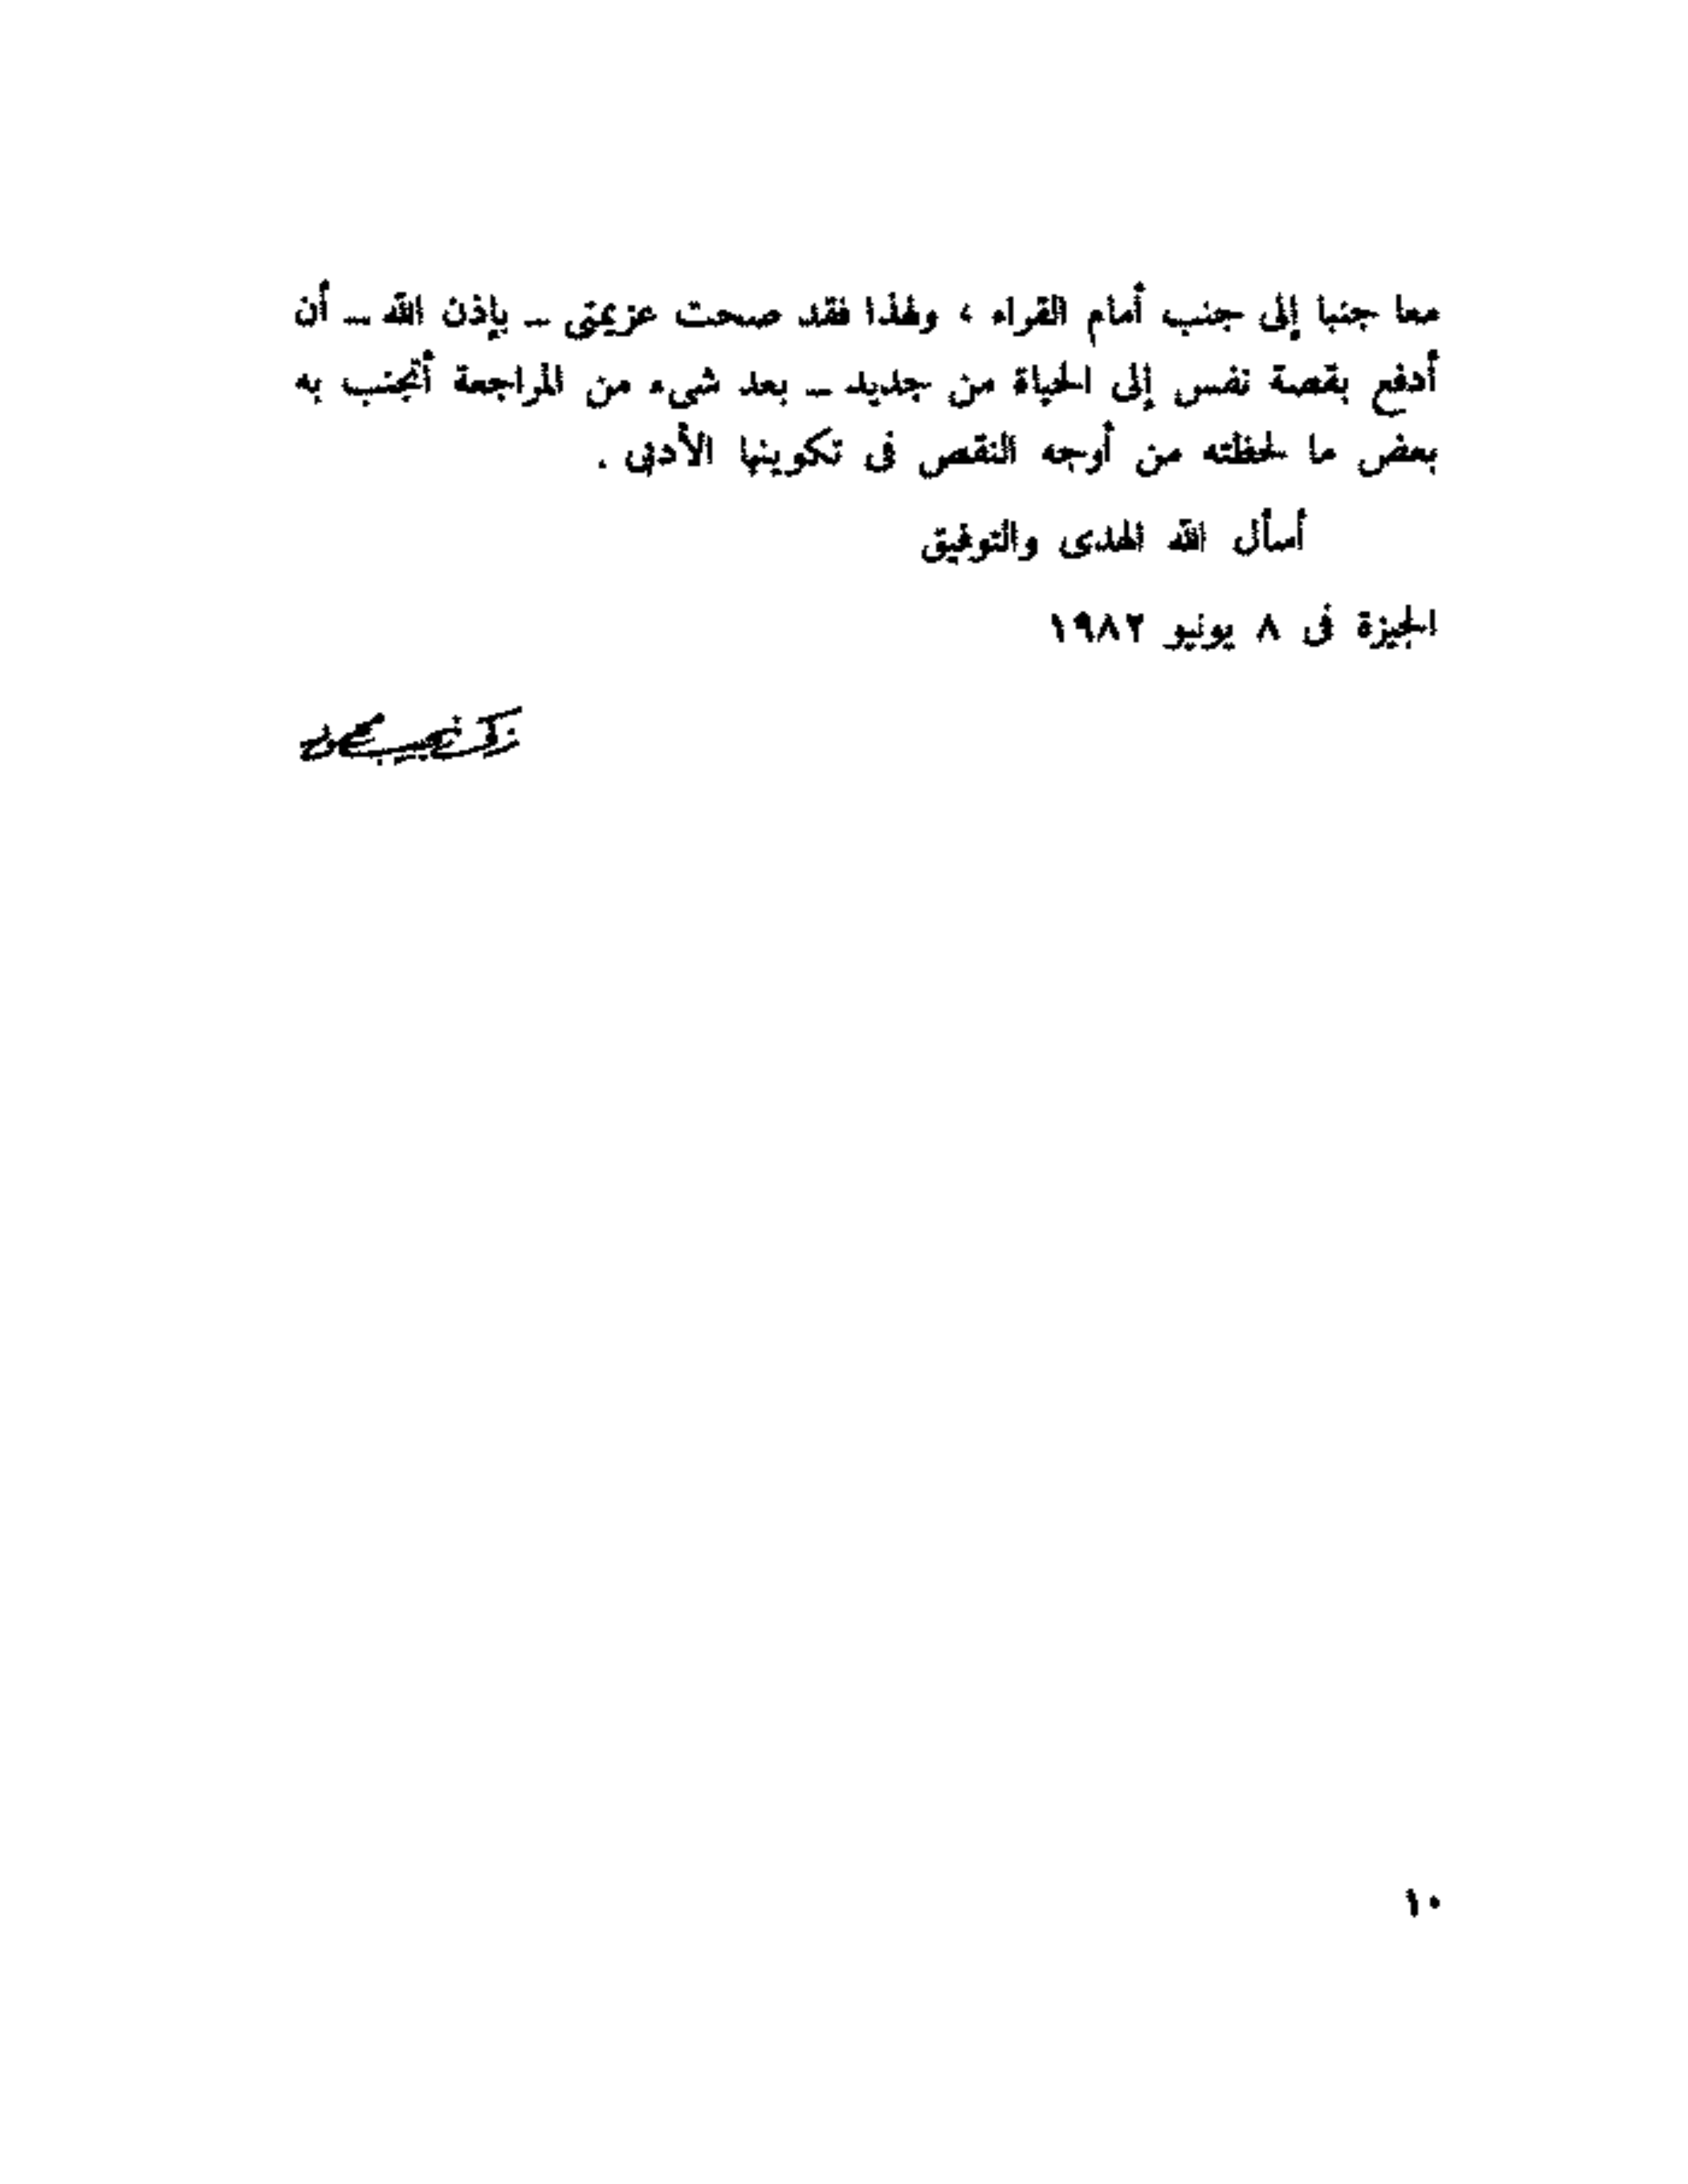 معا جنبا إلى جنب أمام القراء ، ولهذا فقد صحت عزيمتى ــ بإذن الله ــ أن
أدفع بقصة نفس إلى الحياة من جديد ــ بعد شىء من المراجعة أتجنب به
بعض ما لحظته من أوجه النقص فى تكوينها الأدبى .
أسأل الله الهدى والتوفيق
الجيزة فى ٨ يونيو ١٩٨٢
زكى نجيب محمود
١٠